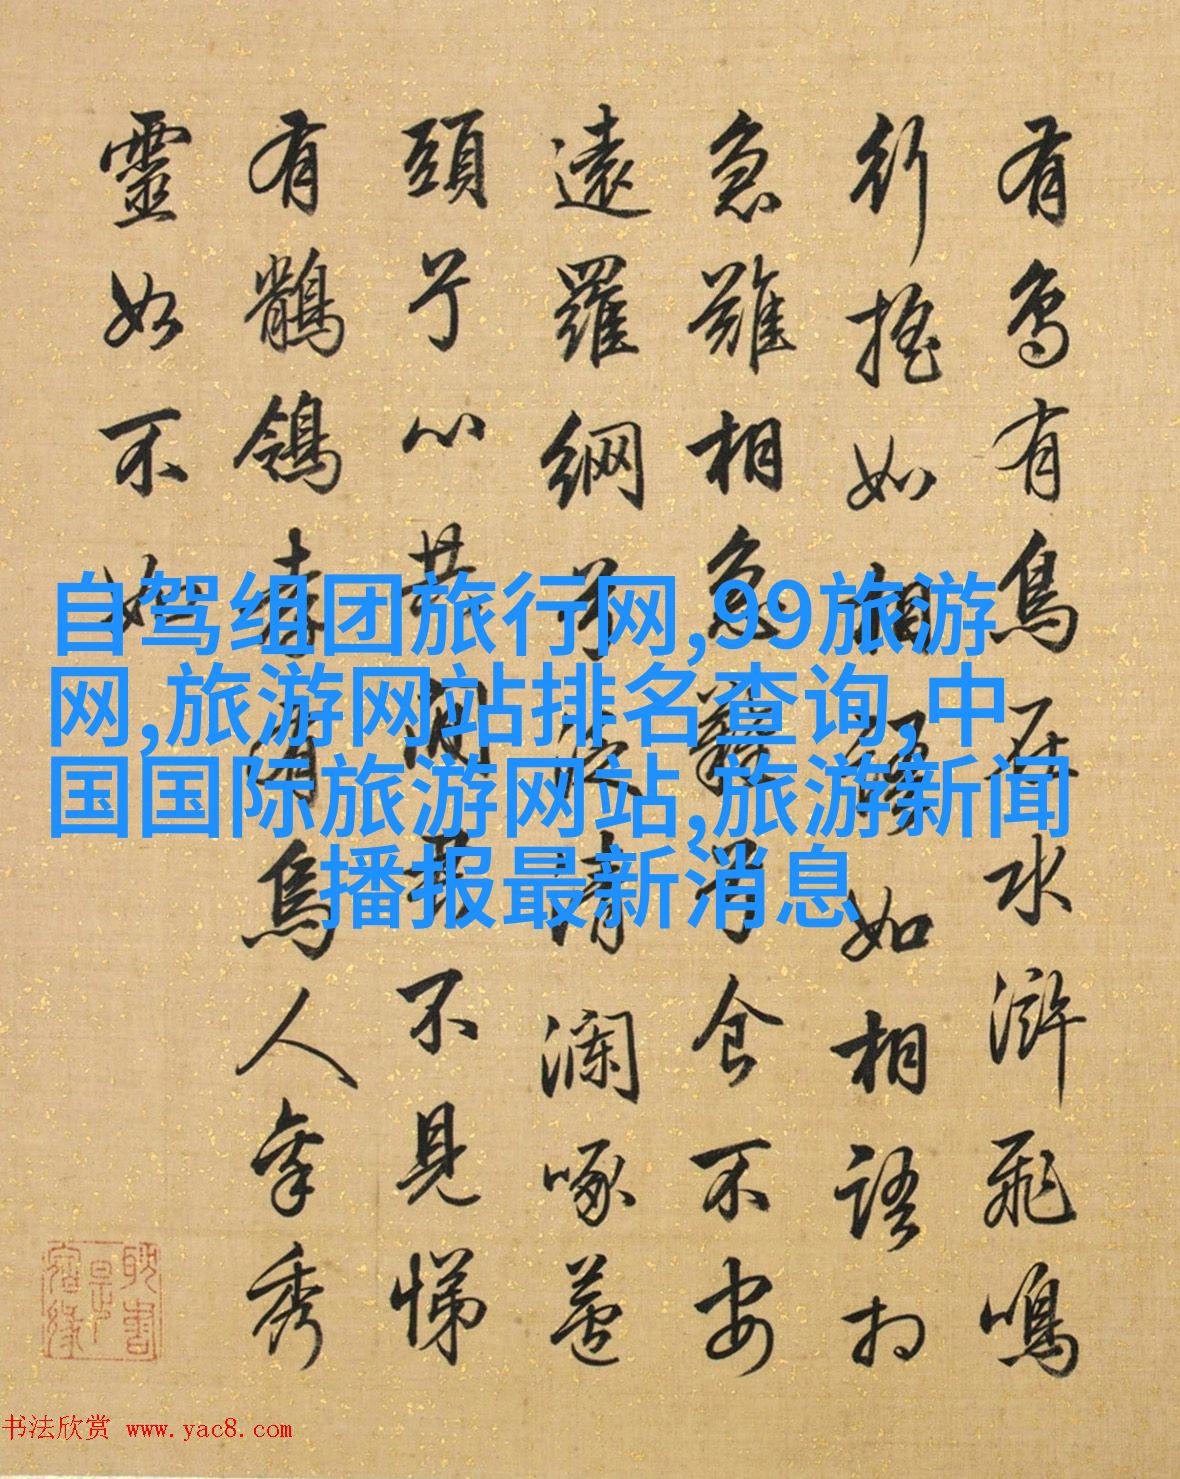 有鳥有鳥在水滸飛鳴
行搖如相語如相語
急難相急難兮食不安
遠羅網兮清瀾啄
頭兮心不見悌
有鶺鴒人秀
靈如不如
自驾组团旅行网,99旅游
网,旅游网站排名查询,中
国国际旅游网站,旅游新闻
播报最新消息
书法欣赏 www.yac8.com